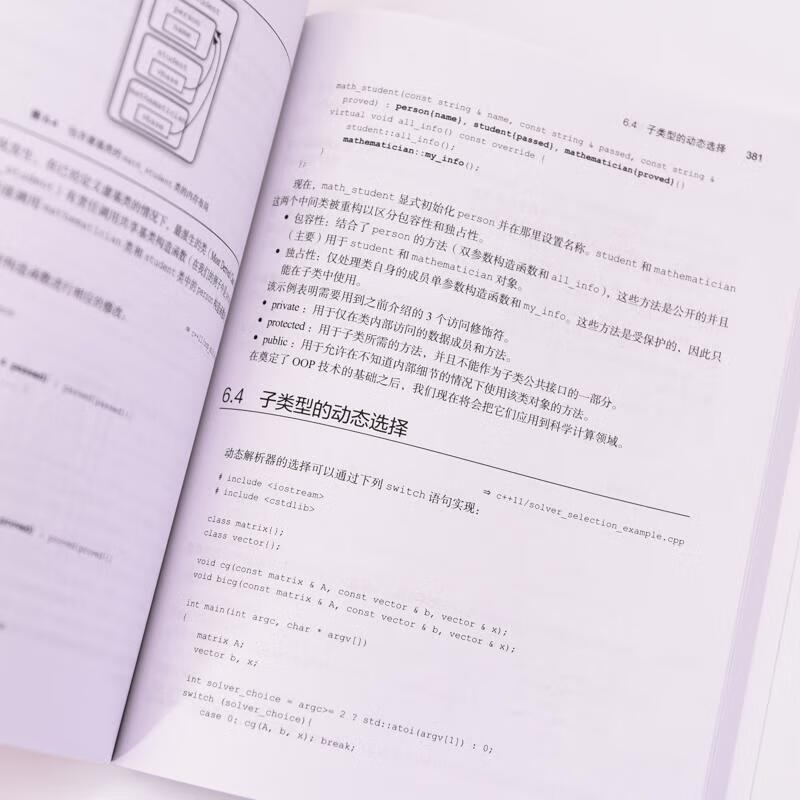 student
person
name
student
vbase
mathematician
vbase
math_student
生的类 (Most Derived
mathematician 类和 student 类中的 person 构造函数
构造函数进行相应的修改。
proved(proved){}
6.4 子类型的动态选择 381
math_student(const string & name, const string & passed, const string &
proved) : person(name), student(passed), mathematician(proved){}
virtual void all_info() const override {
student::all_info();
mathematician::my_info();
}
};
现在，math_student 显式初始化 person 并在那里设置名称。student 和 mathematician
这两个中间类被重构以区分包容性和独占性。
• 包容性：结合了 person 的方法（双参数构造函数和 all_info），这些方法是公开的并且
（主要）用于 student 和 mathematician 对象。
• 独占性：仅处理类自身的成员单参数构造函数和 my_info。这些方法是受保护的，因此只
能在子类中使用。
该示例表明需要用到之前介绍的 3 个访问修饰符。
• private：用于仅在类内部访问的数据成员和方法。
• protected：用于子类所需的方法，并且不能作为子类公共接口的一部分。
• public：用于允许在不知道内部细节的情况下使用该类对象的方法。
在奠定了 OOP 技术的基础之后，我们现在将会把它们应用到科学计算领域。
6.4 子类型的动态选择
⇒ c++11/solver_selection_example.cpp
动态解析器的选择可以通过下列 switch 语句实现：
# include <iostream>
# include <cstdlib>
class matrix{};
class vector{};
void cg(const matrix & A, const vector & b, vector & x);
void bicg(const matrix & A, const vector & b, vector & x);
int main(int argc, char * argv[])
{
matrix A;
vector b, x;
int solver_choice = argc>= 2 ? std::atoi(argv[1]) : 0;
switch (solver_choice){
case 0: cg(A, b, x); break;